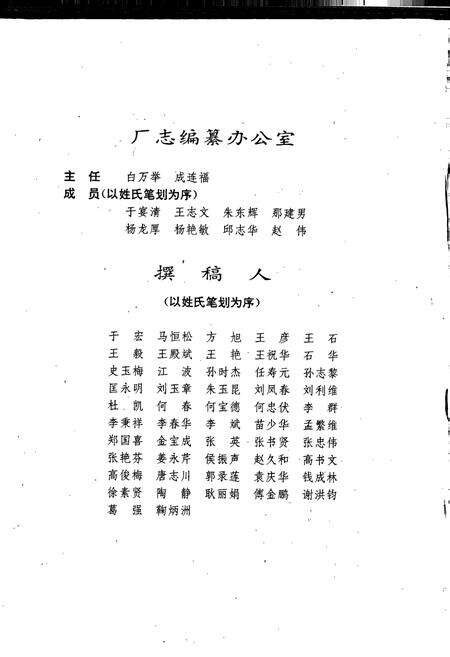 厂志编纂办公室
主 任 白万举 成连福
成 员(以姓氏笔划为序)
于宴清 王志文 朱东辉 那建男
杨龙厚 杨艳敏 邱志华 赵 伟
撰 稿 人
(以姓氏笔划为序)
于 宏 马恒松 方 旭 王 彦 王 石
王 毅 王殿斌 王 艳 王祝华 石 华
史玉梅 江 波 孙时杰 任寿元 孙志黎
匡永明 刘玉章 朱玉昆 刘凤春 刘利维
杜 凯 何 春 何宝德 何忠伏 李 群
李秉祥 李春华 李 斌 苗少华 孟繁维
郑国喜 金宝成 张 英 张书贤 张忠伟
张艳芬 姜永芹 侯振声 赵久和 高书文
高俊梅 唐志川 郭录莲 袁庆华 钱成林
徐素贤 陶 静 耿丽娟 傅金鹏 谢洪钧
葛 强 鞠炳洲